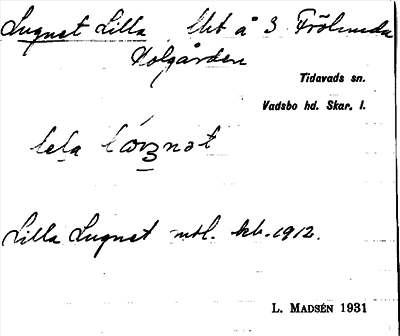 Lugnet Lilla lht å 3 Frölunda
Holgården
Tidavads sn.
Vadsbo hd. Skar. l.
Lilla Lugnet mtl. kb. 1912.
L. MADSÉN 1931